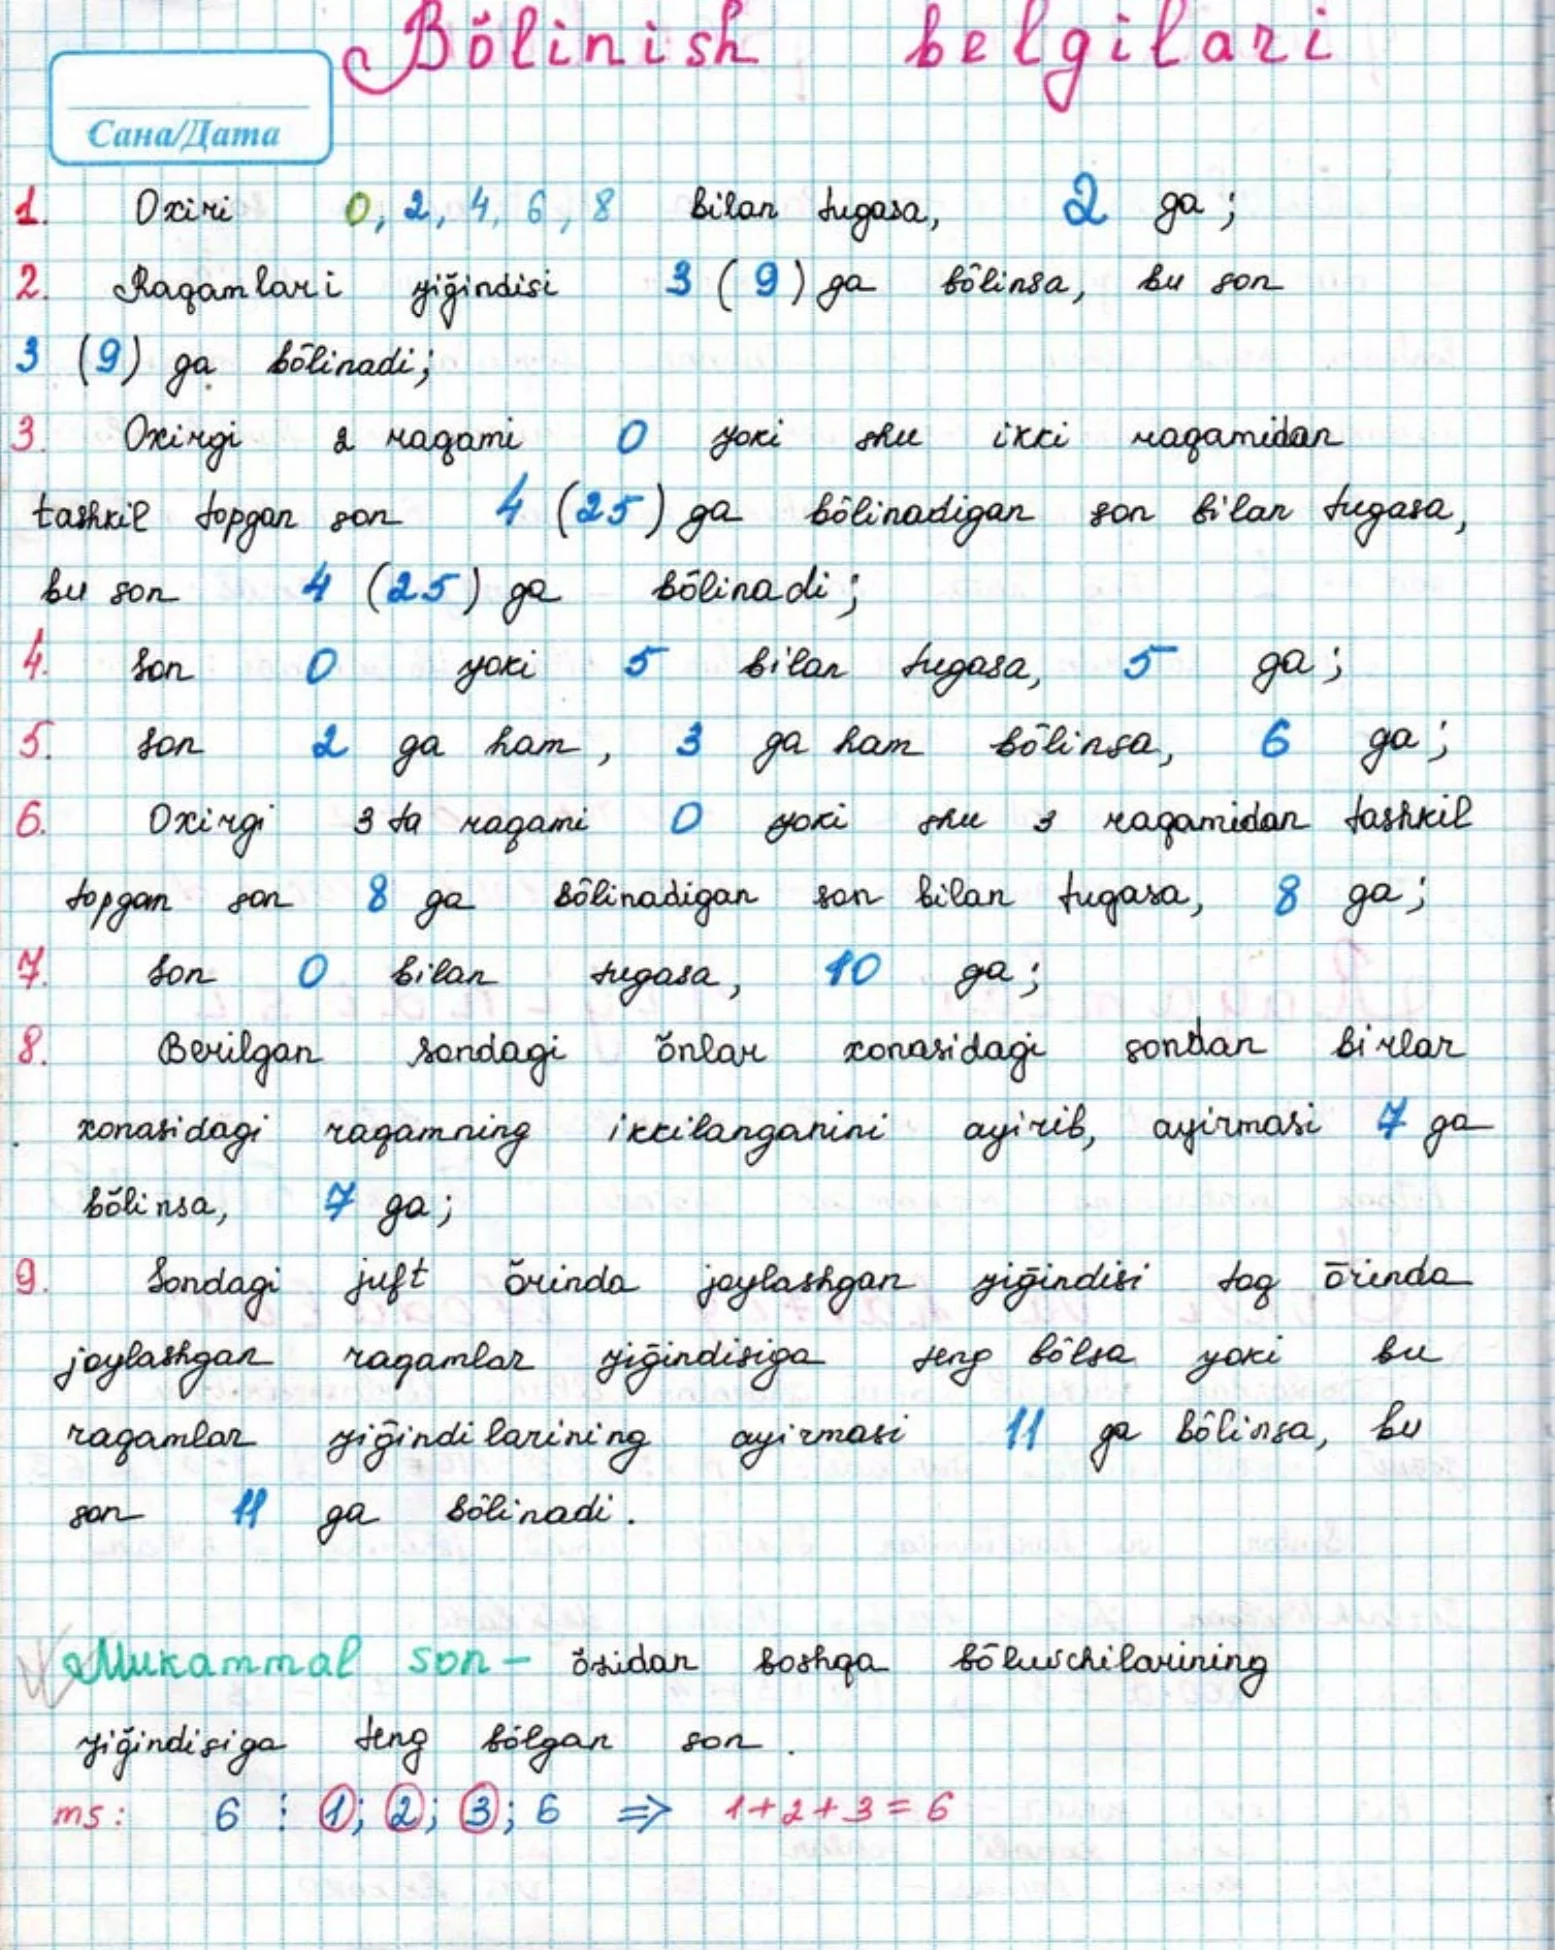 Bŏlinish belgilari
Сана/Дата
1. Oxiri 0, 2, 4, 6, 8 bilan tugasa, 2 ga;
2. Raqamlari yiğindisi 3 (9) ga bŏlinsa, bu son
3 (9) ga bŏlinadi;
3. Oxirgi 2 raqami 0 yoki shu ikki raqamidan
tashkil topgan son 4 (25) ga bŏlinadigan son bilan tugasa,
bu son 4 (25) ga bŏlinadi;
4. Son 0 yoki 5 bilan tugasa, 5 ga;
5. Son 2 ga ham, 3 ga ham bŏlinsa, 6 ga;
6. Oxirgi 3 ta raqami 0 yoki shu 3 raqamidan tashkil
topgan son 8 ga bŏlinadigan son bilan tugasa, 8 ga;
7. Son 0 bilan tugasa, 10 ga;
8. Berilgan sondagi ŏnlar xonasidagi sondan birlar
xonasidagi raqamning ikkilanganini ayirib, ayirmasi 7 ga
bŏlinsa, 7 ga;
9. Sondagi juft ŏrinda joylashgan yiğindisi toq ŏrinda
joylashgan raqamlar yiğindisiga teng bŏlsa yoki bu
raqamlar yiğindilarining ayirmasi 11 ga bŏlinsa, bu
son 11 ga bŏlinadi.
Mukammal son – ŏzidan boshqa bŏluvchilarining
yiğindisiga teng bŏlgan son.
ms: 6 ⋮ 1; 2; 3; 6 => 1+2+3=6